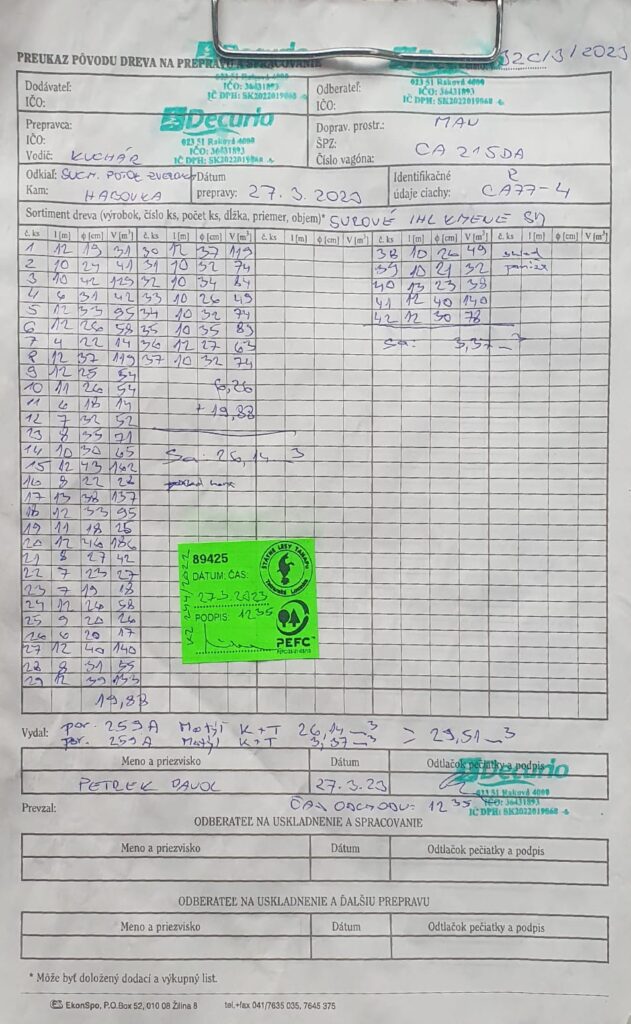 PREUKAZ PÔVODU DREVA NA PREPRAVU A SPRACOVANIE 32C/3/2023
Decurio
023 51 Raková 4000
IČO: 36431893
IČ DPH: SK2022019868
Dodávateľ:
IČO:
Odberateľ:
IČO:
023 51 Raková 4000
IČO: 36431893
IČ DPH: SK2022019868
Prepravca:
IČO:
Vodič: KUCHÁR
Decurio
023 51 Raková 4000
IČO: 36431893
IČ DPH: SK2022019868
Doprav. prostr.: MAN
ŠPZ: CA 215DA
Číslo vagóna:
Odkiaľ: SUCH. POTOK
Kam: HABOVKA
Dátum prepravy: 27.3.2023
Identifikačné
údaje ciachy: CA77-4
Sortiment dreva (výrobok, číslo ks, počet ks, dĺžka, priemer, objem)* SUROVÉ IHL KMENE
č. ks l [m] ϕ [cm] V [m³] č. ks l [m] ϕ [cm] V [m³] č. ks l [m] ϕ [cm] V [m³] č. ks l [m] ϕ [cm] V [m³] č. ks l [m] ϕ [cm] V [m³]
1 12 19 31 30 12 37 119 38 10 26 49
2 10 24 41 31 10 32 74 39 10 21 32
3 10 42 129 32 10 34 84 40 13 23 38
4 6 31 42 33 10 26 49 41 12 40 140
5 12 33 95 34 10 32 74 42 12 30 78
6 12 26 58 35 10 35 89
7 4 22 14 36 12 27 63 Sa: 3,37 m3
8 12 37 119 37 10 32 74
9 12 25 54
10 11 26 54 6,26
11 6 18 14 + 19,88
12 7 32 52
13 8 35 71
14 10 30 65 Sa: 26,14 m3
15 12 43 162
16 8 22 28
17 13 38 137
18 12 33 95
19 11 18 25
20 12 46 186
21 8 27 42
22 7 23 27
23 7 19 18
24 12 26 58
25 9 20 26
26 6 20 17
27 12 40 140
28 8 31 55
29 12 39 133
19,88
KZ 294/2022
89425
DÁTUM: ČAS:
27.3.2023
PODPIS: 1235
ŠTÁTNE LESY TANAPU
TATRANSKÁ LOMNICA
PEFC™
Vydal: por. 259A Motýl K+T 26,14 m3 = 29,51 m3
por. 259A Motýl K+T 3,37 m3
Meno a priezvisko Dátum Odtlačok pečiatky a podpis
PETREK PAVOL 27.3.23
Decurio
023 51 Raková 4000
IČO: 36431893
IČ DPH: SK2022019868
Prevzal: ČAS ODCHODU: 1235
ODBERATEĽ NA USKLADNENIE A SPRACOVANIE
Meno a priezvisko Dátum Odtlačok pečiatky a podpis
ODBERATEĽ NA USKLADNENIE A ĎALŠIU PREPRAVU
Meno a priezvisko Dátum Odtlačok pečiatky a podpis
* Môže byť doložený dodací a výkupný list.
EkonSpo, P.O.Box 52, 010 08 Žilina 8 tel.+fax 041/7635 035, 7645 375